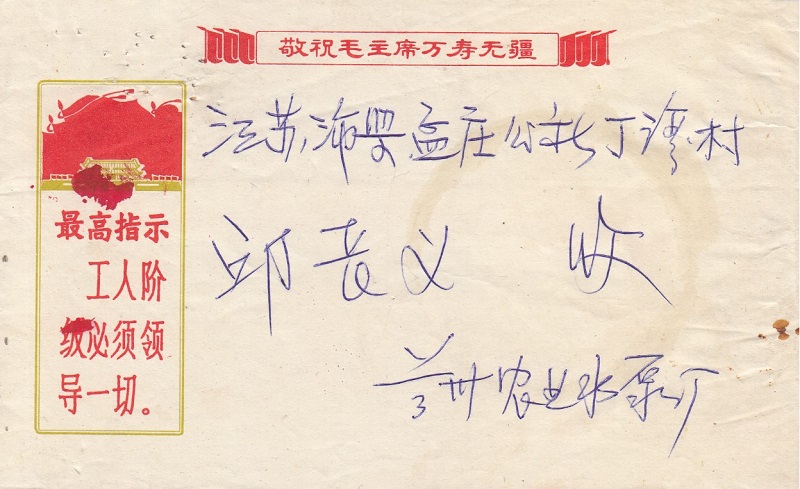 敬祝毛主席万寿无疆
江苏,沛县孟庄公社丁村
邱义 收
兰州农业水泵厂
最高指示
工人阶
级必须领
导一切。